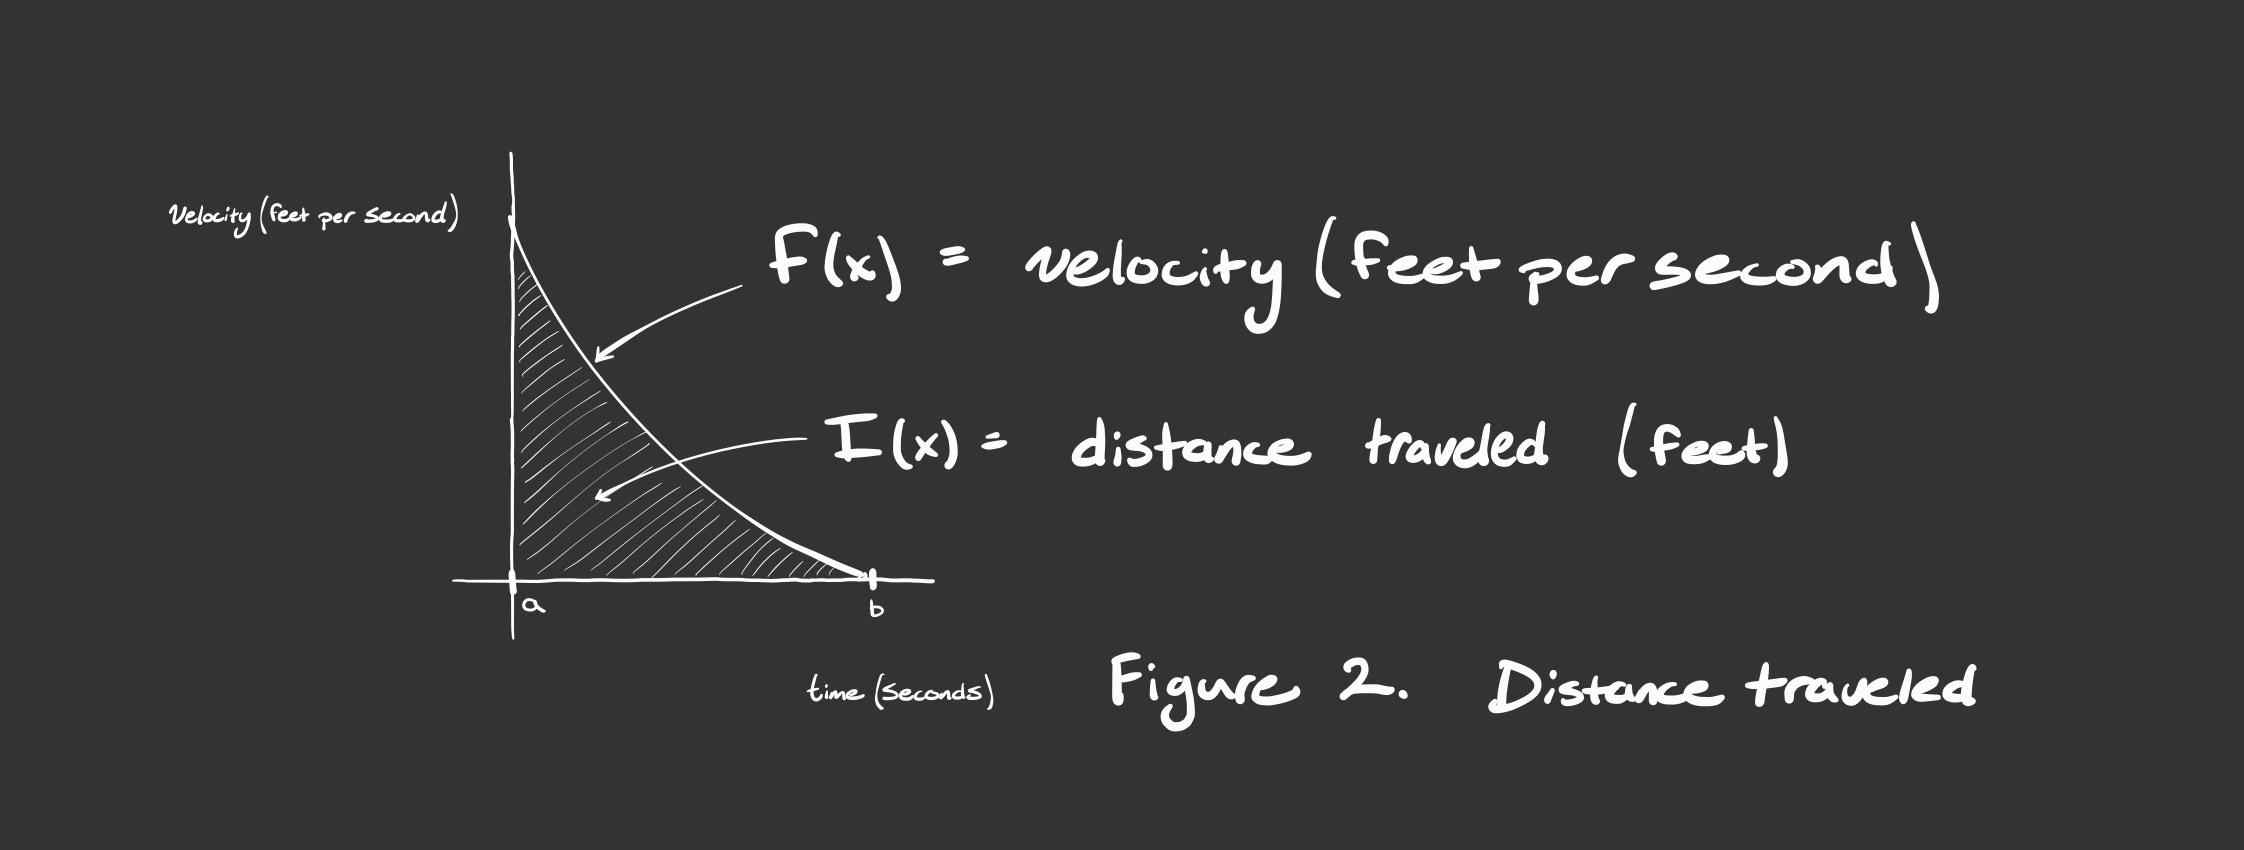 Velocity (feet per second)
F(x) = velocity (feet per second)
I(x) = distance traveled (feet)
a
b
time (seconds)
Figure 2. Distance traveled